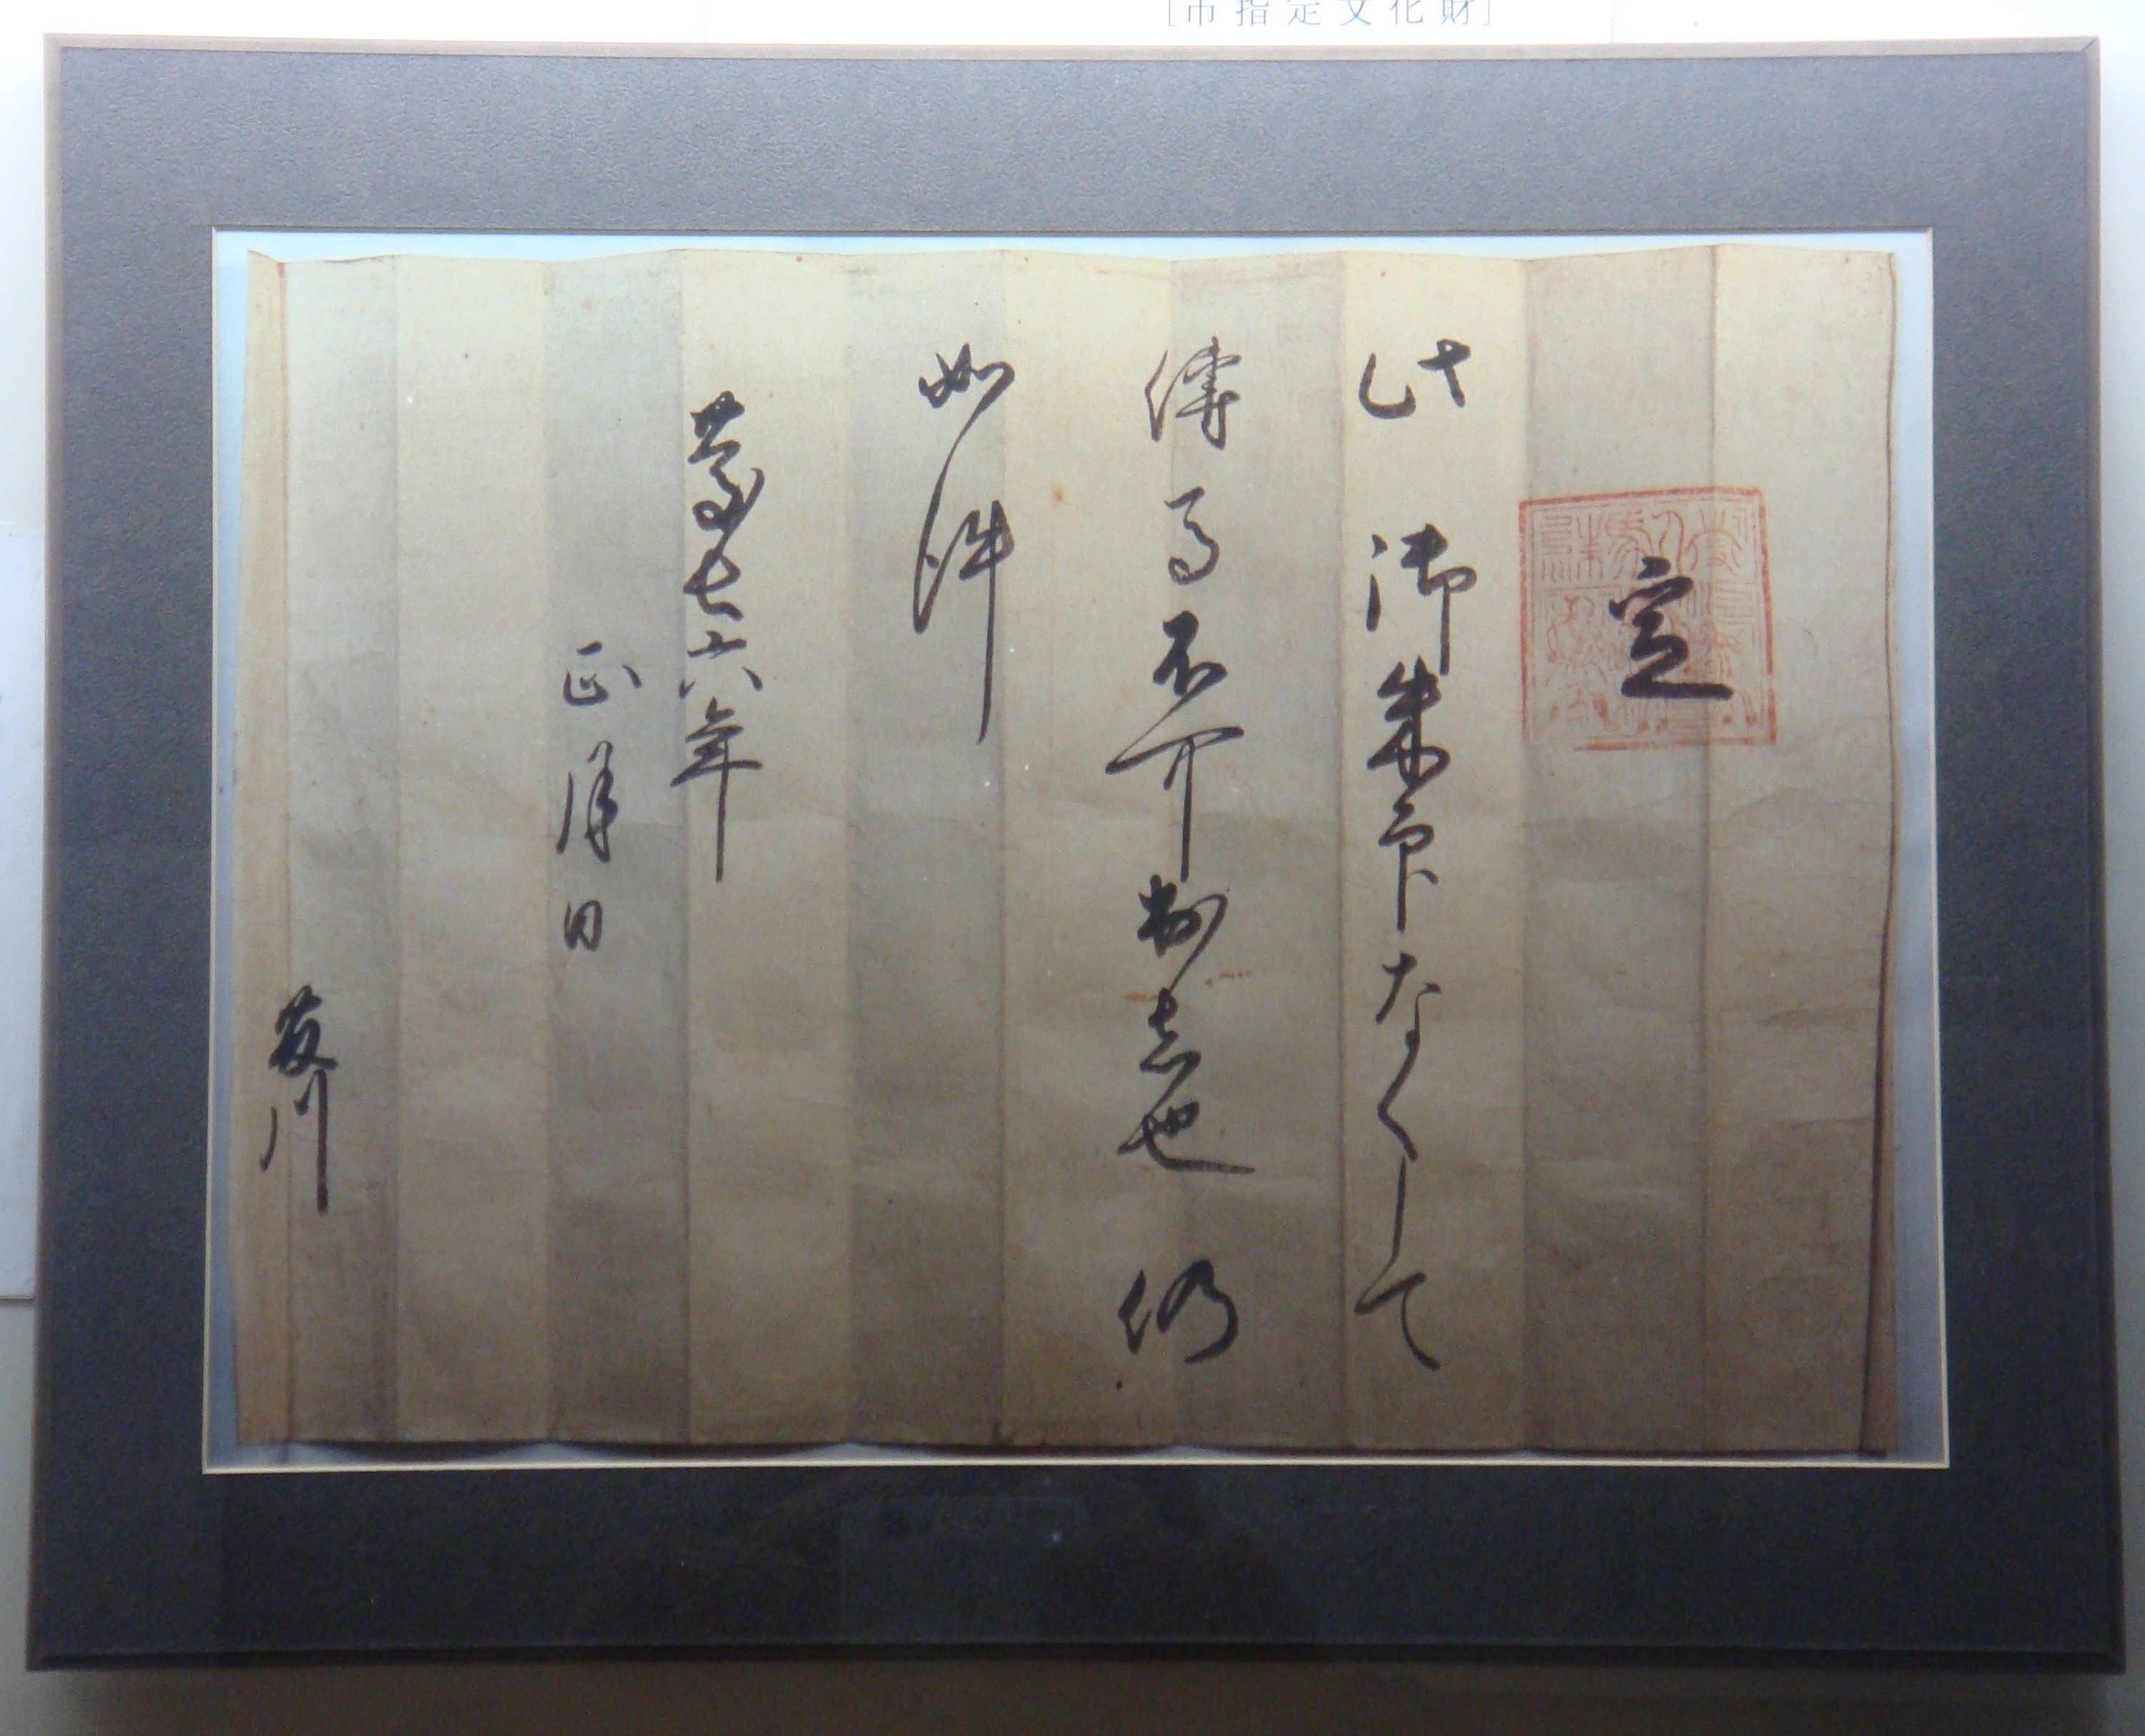 [市指定文化財]
定
此御朱印なくして
傳馬不可出者也仍
如件
慶長六年
正月日
藤川